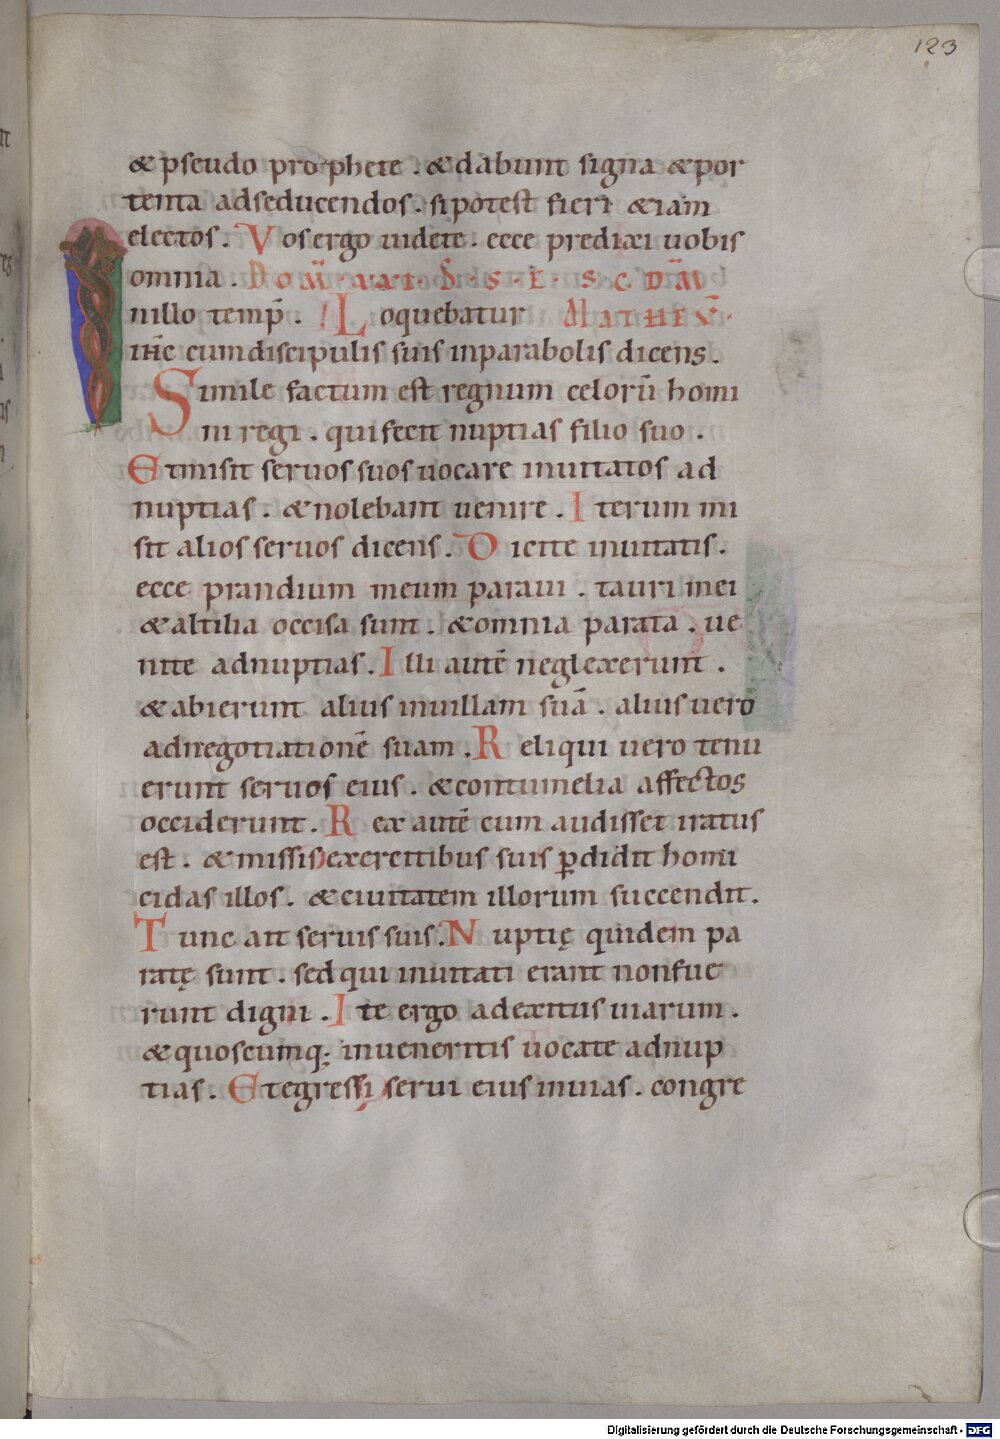 123
& pseudo prophete . & dabunt signa & por
tenta adseducendos . si potest fieri &iam
electos . Vos ergo uidete . ecce predixi uobis
omnia .
nillo temp̄ . Loquebatur MATHEV̄ .
ih̄c cum discipulis suis inparabolis dicens .
Simile factum est regnum celorū homi
ni regi . qui fecit nuptias filio suo .
Et misit seruos suos uocare inuitatos ad
nuptias . & nolebant uenire . Iterum mi
sit alios seruos dicens . Dicite inuitatis .
ecce prandium meum paraui . tauri mei
& altilia occisa sunt . & omnia parata . ue
nite adnuptias . Illi autē neglexerunt .
& abierunt alius inuillam suā . alius uero
adnegotiationē suam . Reliqui uero tenu
erunt seruos eius . & contumelia affectos
occiderunt . Rex autē cum audisset iratus
est . & missis exercitibus suis ꝑdidit homi
cidas illos . & ciuitatem illorum succendit .
Tunc ait seruis suis . Nuptię quidem pa
ratę sunt . sed qui inuitati erant non fue
runt digni . Ite ergo adexitus uiarum .
& quoscumq; inueneritis uocate adnup
tias . Et egressi serui eius inuias . congre
Digitalisierung gefördert durch die Deutsche Forschungsgemeinschaft - DFG